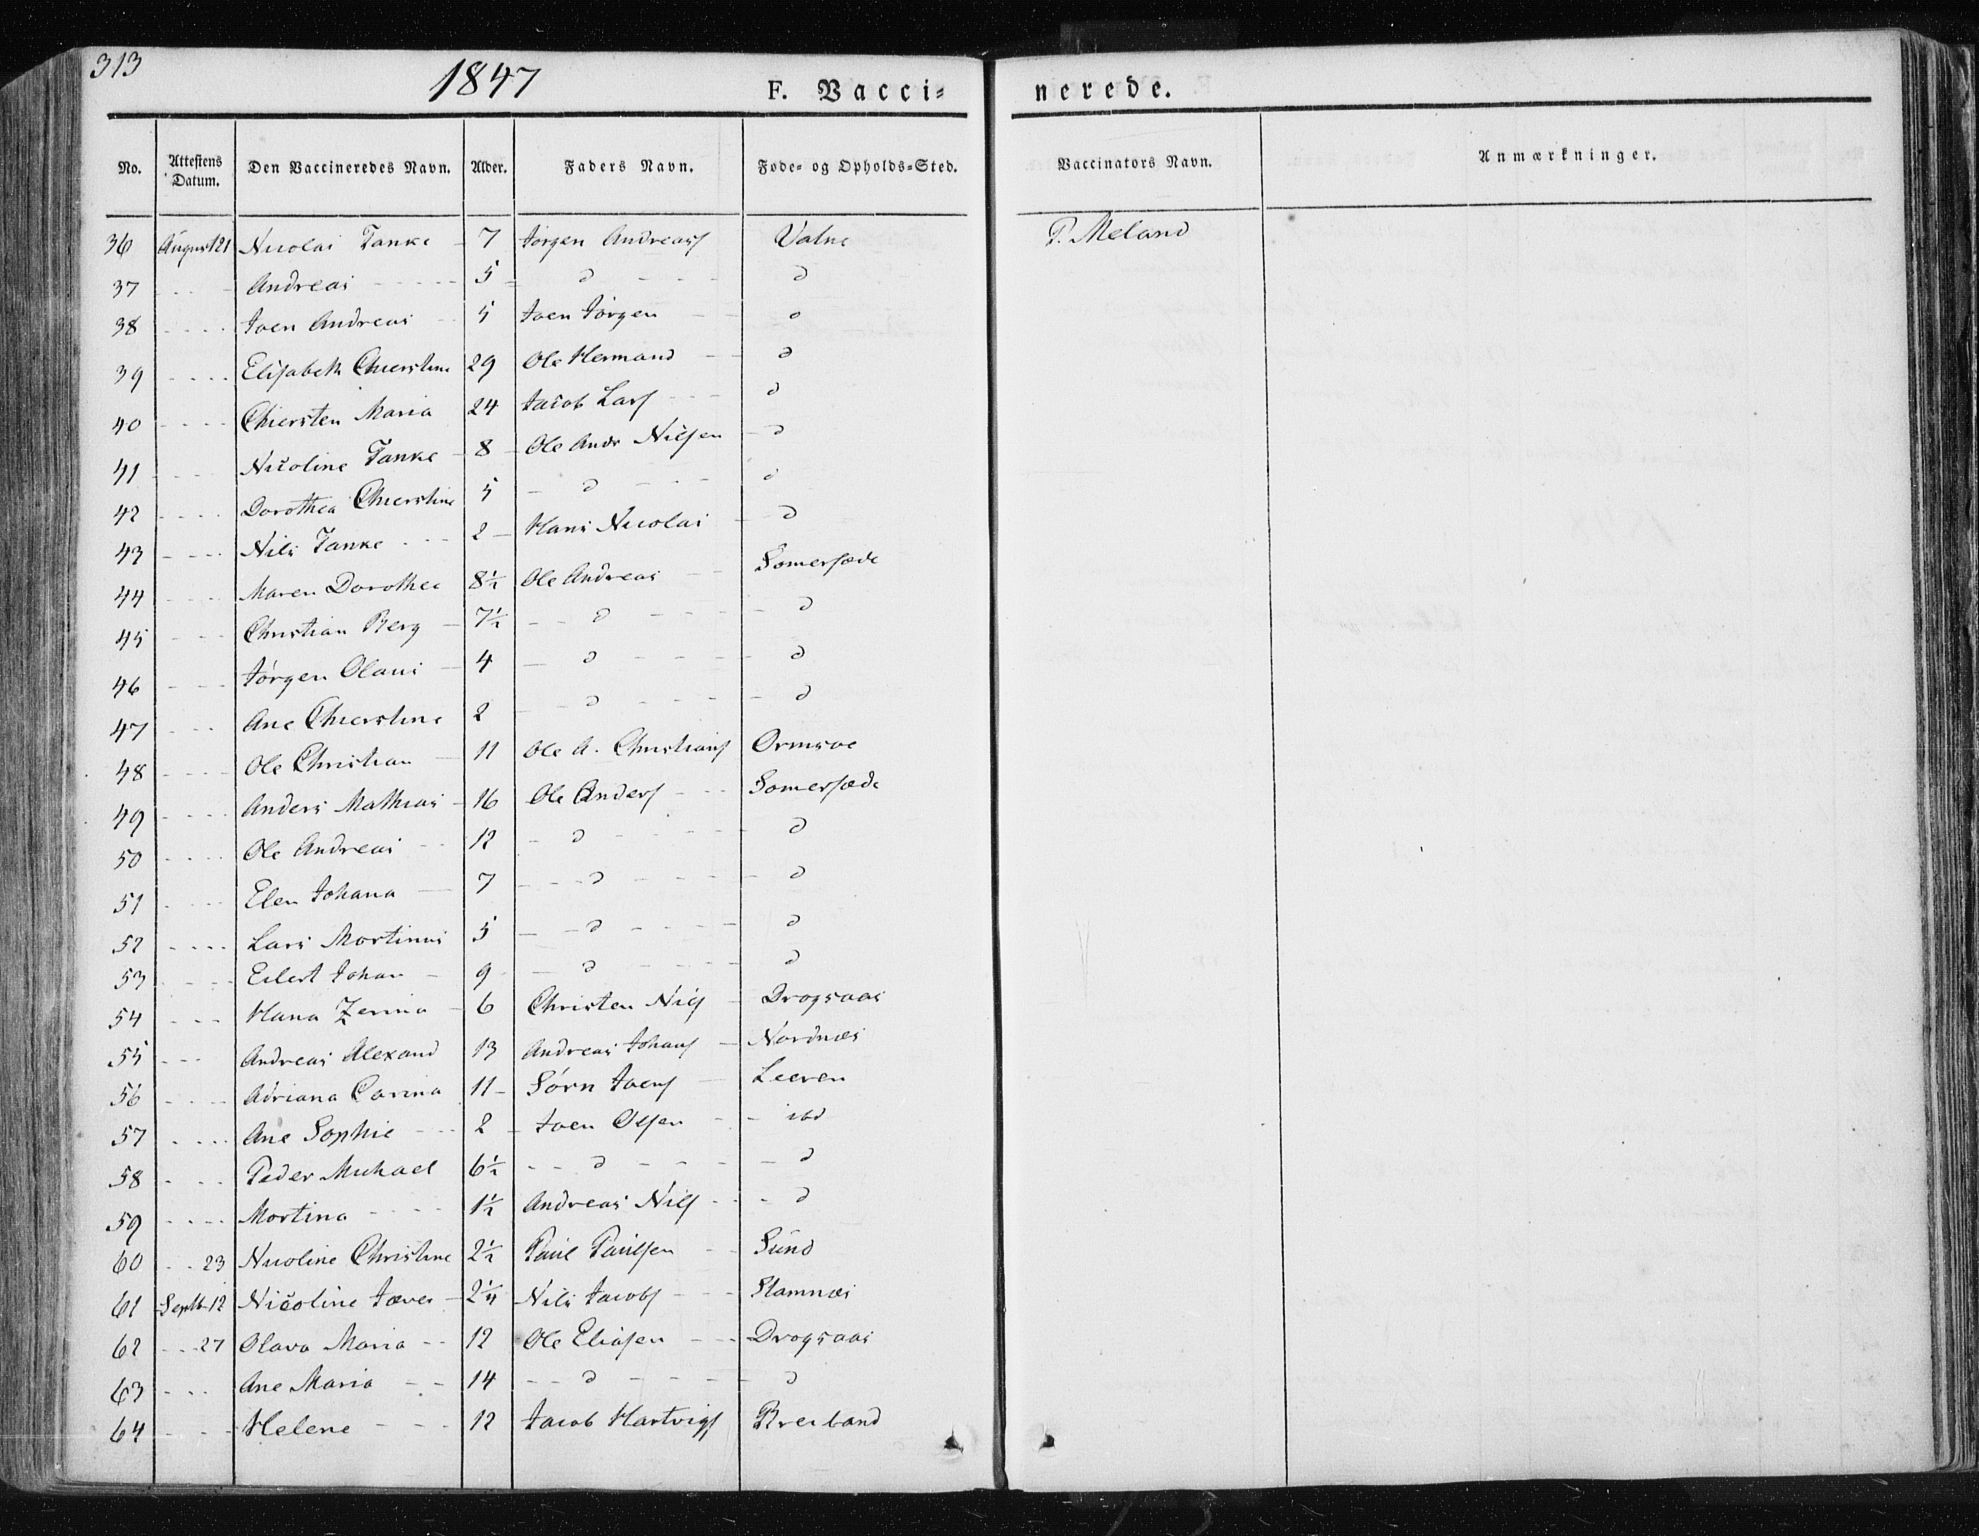 313
1847
F. Vacci= nerede.
No. Attestens Datum. Den Vaccineredes Navn. Alder. Faders Navn. Føde= og Opholds=Sted. Vaccinators Navn. Anmærkninger.
36 August 21 Nicolai Tanke - 7 Jørgen Andreass Valne P. Meland
37 - - - Andreas - - - - 5 - d - - - d
38 - - - - Joen Andreas - 5 Joen Jørgen - - d
39 - - - - Elisabeth Chierstine 29 Ole Hermand - - d
40 - - - - Chiersten Maria 24 Jacob Lars - - - d
41 - - - Nicoline Tanke - 8 - Ole Andr Nilsen - d
42 - - - - Dorothea Chierstine 5 - d - - - d
43 - - - - Nils Tanke - - - 2 - Hans Nicolai - d
44 - - - - Maren Dorothea 8½ Ole Andreas - - Somersæde
45 - - - Christian Berg - 7½ - - d - - - - d
46 - - - Jørgen Olaus - 4 - d - - - d
47 - - - Ane Chierstine 2 - d - - - - d
48 - - - - Ole Christian - 11 Ole A. Christians Ormsoe
49 - - - - Anders Mathias - 16 Ole Anders - - - Somersæde
50 - - - - Ole Andreas - - 12 - d - - - - d
51 - - - - Elen Johana - 7 - - - d - - - - d
52 - - - - Lars Mortinus 5 - - d - - - - d
53 - - - - Eilert Johan - 9 - - d - - - - d
54 - - - Hana Zerina - 6 Christen Nils - Drogsaas
55 - - - Andreas Alexand 13 Andreas Johans - Nordnæs
56 - - - - Adriana Carina 11 - Sørn Joens - Leeren
57 - - - - Ane Sophie - - - 2 - Joen Olsen - - ibd
58 - - - Peder Michael 6½ - - d - - - - d
59 - - - - Mortina - - - - 1½ Andreas Nils - - - d
60 - - 23 Nicoline Christine 2½ Paul Paulsen - - Sund
61 Septb 12 Nicoline - 2¼ Nils Jacobs - - - Stamnæs
62 - - - 27 Olava Maria - - 12 Ole Eliasen - - - Drogsaas
63 - - - Ane Maria - - 14 - - d - - - - d
64 - - - Helene - - - 12 Jacob Hartvigs Breiband